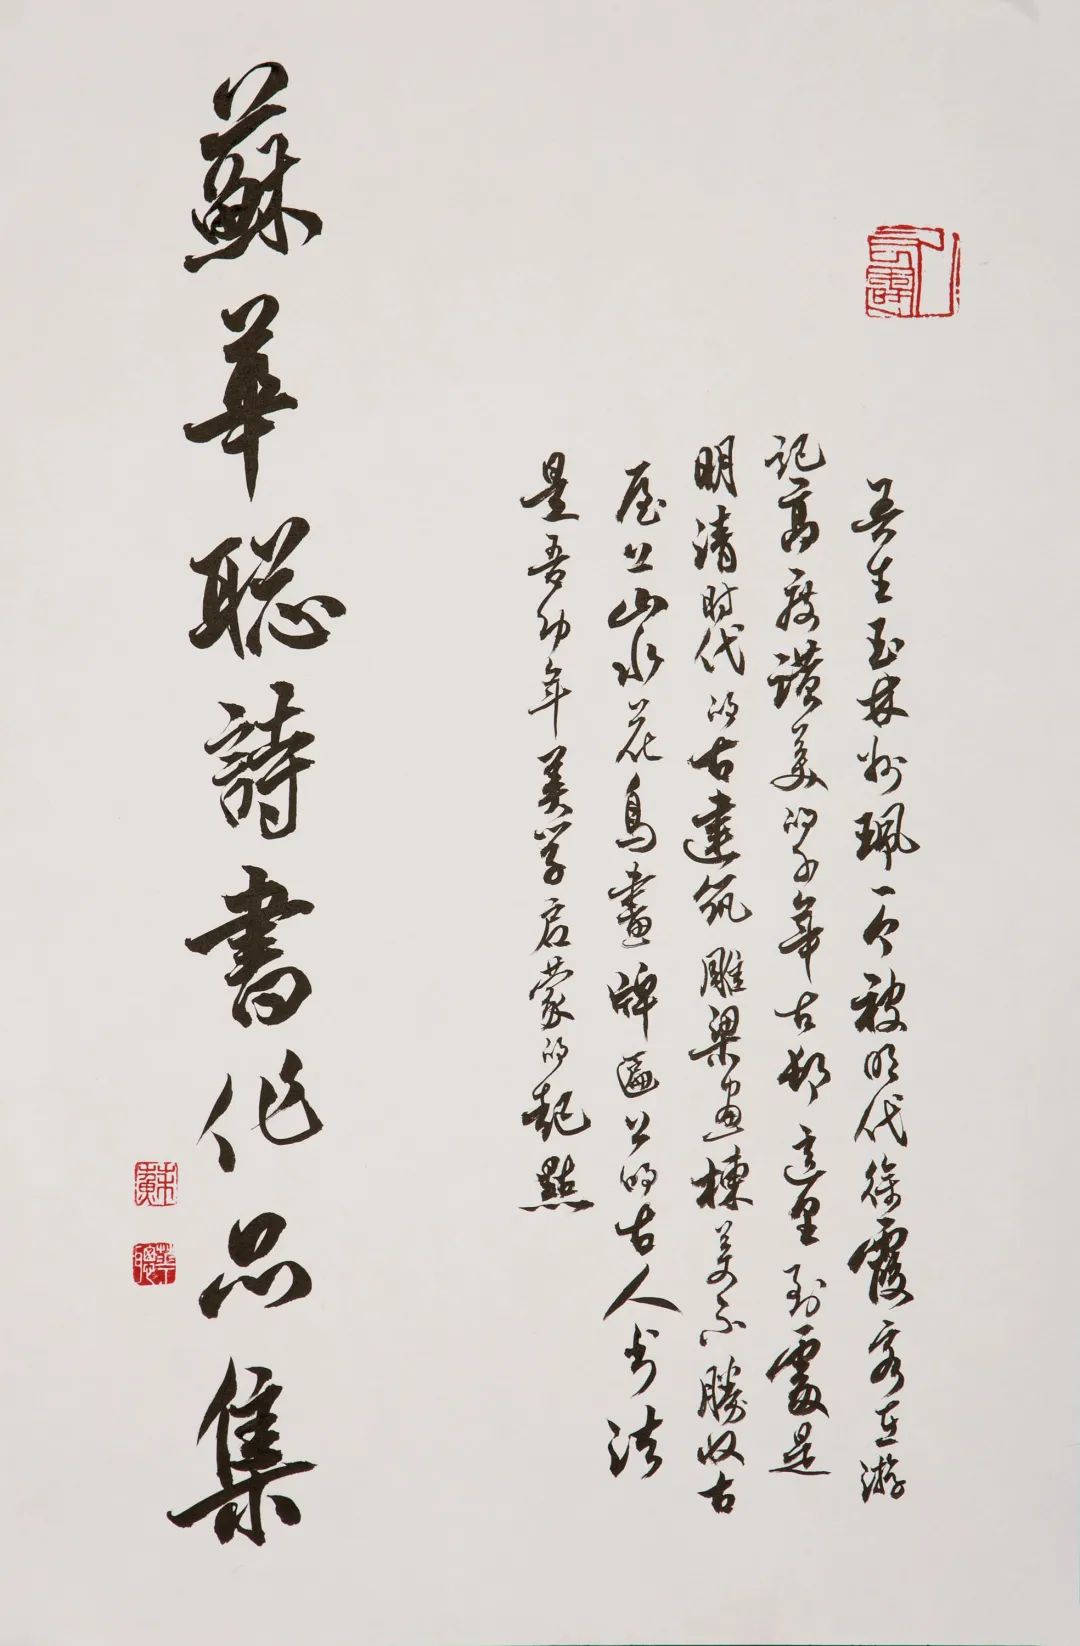 吾生玉林州珮一个被明代徐霞客在游
记高度讚美的少年古邨這里到處是
明清时代的古建筑雕梁画棟美不勝收古
屋上山水花鳥畫牌匾上的古人书法
是吾幼年美学启蒙的起點
蘇華聪詩書作品集
蘇
華聰